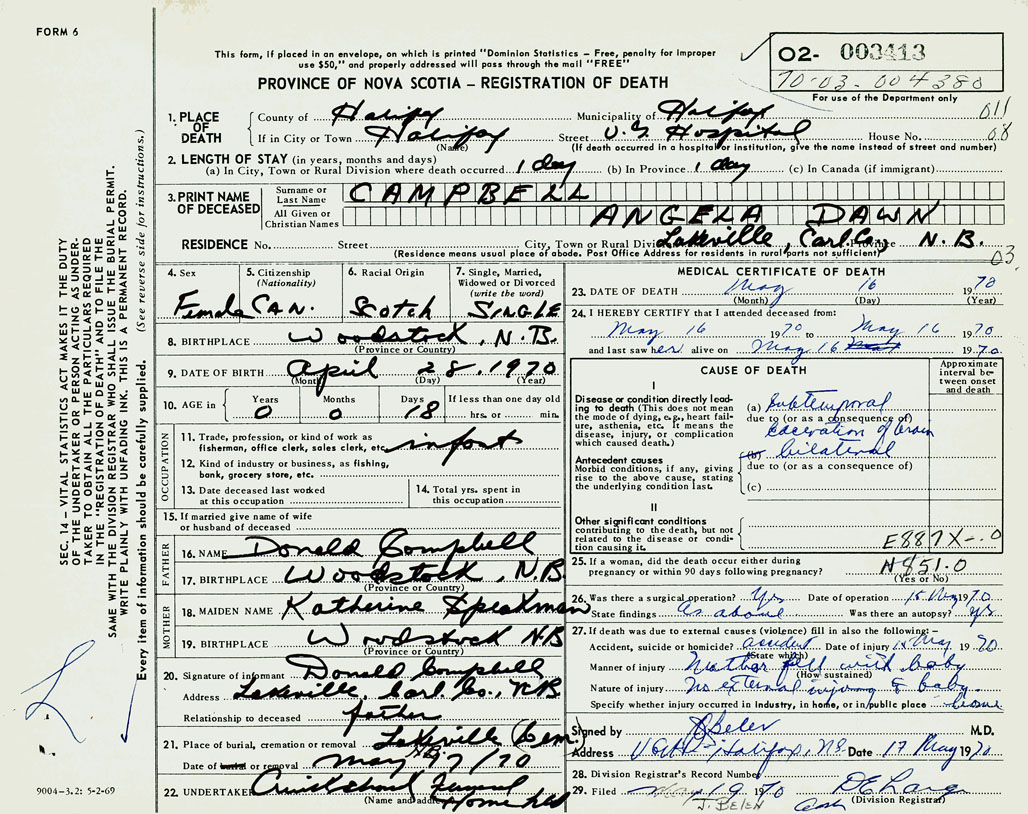 FORM 6
This form, if placed in an envelope, on which is printed "Dominion Statistics – Free, penalty for improper
use $50," and properly addressed will pass through the mail "FREE"
PROVINCE OF NOVA SCOTIA – REGISTRATION OF DEATH
02- 003413
70-03-004380
For use of the Department only
011
08
1. PLACE OF DEATH
County of Halifax Municipality of Halifax
If in City or Town Halifax Street V.G. Hospital House No.
(Name) (If death occurred in a hospital or institution, give the name instead of street and number)
2. LENGTH OF STAY (in years, months and days)
(a) In City, Town or Rural Division where death occurred 1 day (b) In Province 1 day (c) In Canada (if immigrant)
3. PRINT NAME OF DECEASED
Surname or Last Name CAMPBELL
All Given or Christian Names ANGELA DAWN
RESIDENCE No. Street City, Town or Rural Division Lakeville, Carl. Co., Province N.B.
(Residence means usual place of abode. Post Office Address for residents in rural parts not sufficient)
03
4. Sex 5. Citizenship 6. Racial Origin 7. Single, Married,
(Nationality) Widowed or Divorced
(write the word)
Female CAN. Scotch SINGLE
8. BIRTHPLACE Woodstock, N.B.
(Province or Country)
9. DATE OF BIRTH April 28, 1970
(Month) (Day) (Year)
10. AGE in Years Months Days If less than one day old
0 0 18 hrs. or min.
OCCUPATION
11. Trade, profession, or kind of work as
fisherman, office clerk, sales clerk, etc. infant
12. Kind of industry or business, as fishing,
bank, grocery store, etc.
13. Date deceased last worked
at this occupation
14. Total yrs. spent in
this occupation
15. If married give name of wife
or husband of deceased
FATHER
16. NAME Donald Campbell
17. BIRTHPLACE Woodstock, N.B.
(Province or Country)
MOTHER
18. MAIDEN NAME Katherine Speakman
19. BIRTHPLACE Woodstock N.B
(Province or Country)
20. Signature of informant Donald Campbell
Address Lakeville, Carl. Co., N.B
Relationship to deceased father
21. Place of burial, cremation or removal Lakeville (Cem.) N.B.
Date of burial or removal May 17/70
22. UNDERTAKER Cruikshank Funeral
(Name and address) Home
MEDICAL CERTIFICATE OF DEATH
23. DATE OF DEATH May 16 1970
(Month) (Day) (Year)
24. I HEREBY CERTIFY that I attended deceased from:
May 16 1970 to May 16 1970
and last saw her alive on May 16 1970
CAUSE OF DEATH
Approximate
interval be-
tween onset
and death
I
Disease or condition directly lead-
ing to death (This does not mean
the mode of dying, e.g., heart fail-
ure, asthenia, etc. It means the
disease, injury, or complication
which caused death.)
(a) Subtemporal
due to (or as a consequence of)
laceration of brain
Antecedent causes
Morbid conditions, if any, giving
rise to the above cause, stating
the underlying condition last.
(b) bilateral
due to (or as a consequence of)
(c)
II
Other significant conditions
contributing to the death, but not
related to the disease or condi-
tion causing it.
E887X-.0
25. If a woman, did the death occur either during
pregnancy or within 90 days following pregnancy?
N851.0
(Yes or No)
26. Was there a surgical operation? Yes Date of operation 15 May 1970
State findings As above Was there an autopsy? yes
27. If death was due to external causes (violence) fill in also the following:–
Accident, suicide or homicide? accident Date of injury 15 May 1970
(State which)
Manner of injury Mother fell with baby
(How sustained)
Nature of injury No external injury of baby.
Specify whether injury occurred in industry, in home, or in public place home
Signed by JBelen M.D.
Address VGH – Halifax, NS Date 17 May 1970
28. Division Registrar's Record Number
29. Filed May 19 1970 D E Lang
J. BELEN (Division Registrar)
SEC. 14 – VITAL STATISTICS ACT MAKES IT THE DUTY
OF THE UNDERTAKER OR PERSON ACTING AS UNDER-
TAKER TO OBTAIN ALL THE PARTICULARS REQUIRED
IN THE "REGISTRATION OF DEATH" AND TO FILE THE
SAME WITH THE DIVISION REGISTRAR WHO SHALL ISSUE THE BURIAL PERMIT.
WRITE PLAINLY WITH UNFADING INK. THIS IS A PERMANENT RECORD.
Every item of information should be carefully supplied. (See reverse side for instructions.)
9004-3.2: 5-2-69